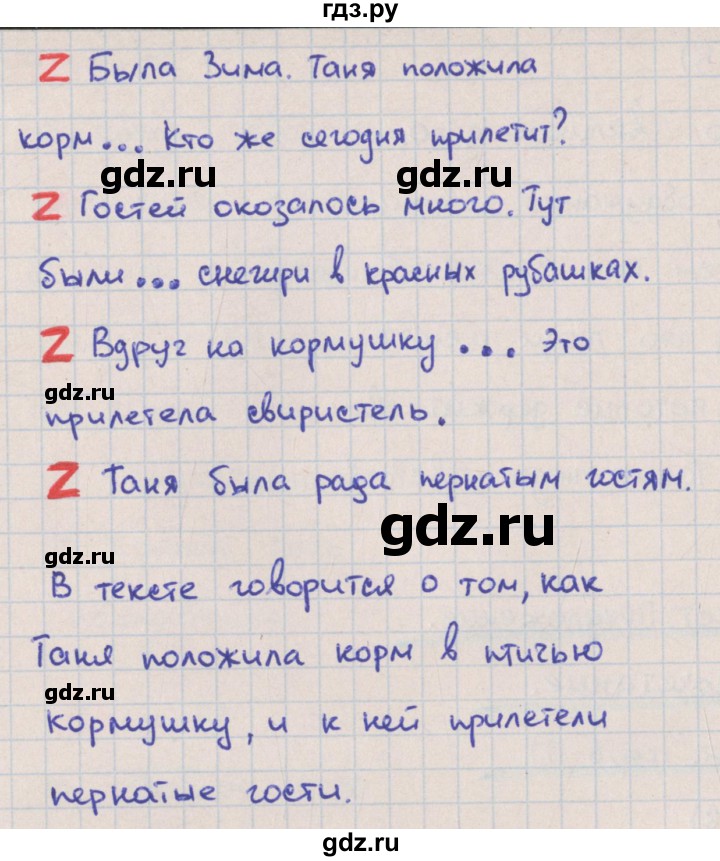 гдз.ру
Z Была Зима. Таня положила
корм... Кто же сегодня прилетит?
gdz.ru gdz.ru
Z Гостей окозалось много. Тут
были... снегири в красных рубашках.
Z Вдруг на кормушку ... Это
gdz.ru
прилетела свиристель.
Z Таня была рада пернатым гостям.
gdz.ru
gdz.ru
В тексте говорится о том, как
Таня положила корм в птичью
gdz.ru
кормушку, и к ней прилетели
пернатые гости.
gdz.ru